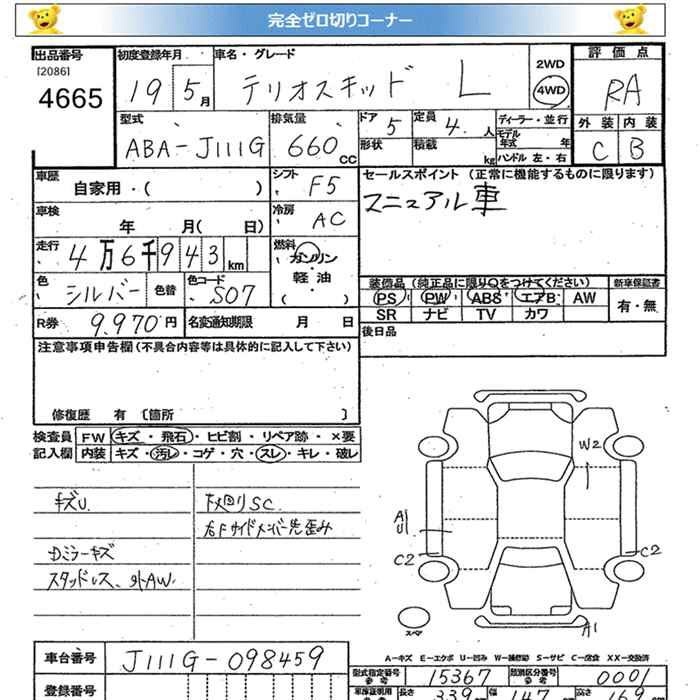 完全ゼロ切りコーナー
出品番号 初度登録年月 車名・グレード 2WD 評価点
[2086] 4665 19 5月 テリオスキッド L 4WD RA
型式 排気量 ドア 定員 ディーラー・並行 外装 内装
ABA-J111G 660cc 5 4.人 モデル年式 年 C B
形状 積載 kg ハンドル 左・右
車歴 シフト セールスポイント (正常に機能するものに限ります)
自家用・( ) F5 マニュアル車
車検 冷房
年 月( 日) AC
走行 燃料
4万6千943km ガソリン 軽油 ( )
色 色替 色コード 装備品(純正品に限りOをつけてください) 新車保証書
シルバー S07 PS PW ABS エアB AW 有・無
R券 9.970円 名変通知期限 月 日 SR ナビ TV カワ
後日品
注意事項申告欄(不具合内容等は具体的に記入して下さい)
修復歴 有 〔箇所 〕
検査員 FW キズ・飛石・ヒビ割・リペア跡・×要
記入欄 内装 キズ・汚レ・コゲ・穴・スレ・キレ・破レ
キズU. 下廻りSC.
右Fサイドメンバー先歪み
Dミラーキズ
スタッドレス、外AW.
W2
A1
U1
C2 C2
スペア A1
A-キズ E-エクボ U-凹み W-補修跡 S-サビ C-腐食 XX-交換済
車台番号 J111G-098459
型式指定番号 参考 15367 類別区分番号 参考 0001
登録番号 長さ 339 cm 幅 147 cm 高さ